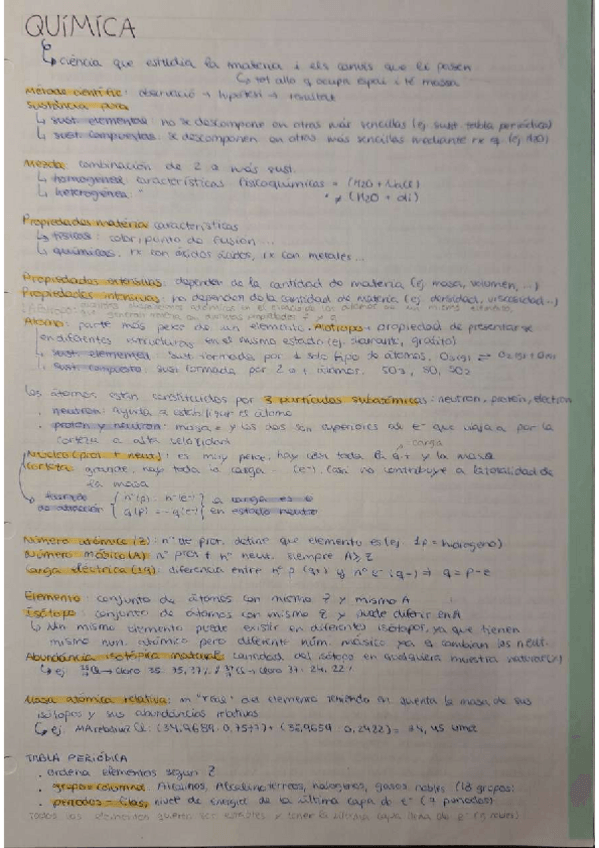 QUÍMICA
ciència que estudia la matèria i els canvis que li passen
tot allò q ocupa espai i té massa
Método científic: observació → hipòtesi → resultat
Sustancia pura
↳ sust. elemental: no se descompone en otras más sencillas (ej sust. tabla periódica)
↳ sust. compuestas: se descomponen en otras más sencillas mediante rx q. (ej H2O)
Mezcla: combinación de 2 o más sust.
↳ homogénea: características fisicoquímicas = (H2O + NaCl)
↳ heterogénea: " " ≠ (H2O + oli)
Propiedades matèria: características
↳ físicas: color, punto de fusión...
↳ químicas: rx con ácidos, rx con metales...
Propiedades extensivas: dependen de la cantidad de materia (ej masa, volumen, ...)
Propiedades intensivas: no dependen de la cantidad de materia (ej densidad, viscosidad...)
Átomo: parte más peque de un elemento. Alótropos → propiedad de presentarse
en diferentes estructuras en el mismo estado (ej diamant, grafito)
↳ sust. elemental: sust. formada por 1 solo tipo de átomos,
↳ sust. compuesta: sust. formada por 2 o +
Los átomos están constituidos por 3 partículas subatómicas: neutron, protón, electron
· neutron: ayuda a estabilizar el átomo
· protón y neutron: masa = y los dos son superiores al e⁻ que viaja por la
corteza a alta velocidad
carga
Núcleo (prot + neut): es muy peque, hay casi toda la q+ y la masa
Corteza: grande, hay toda la carga - (e⁻). Casi no contribuye a la totalidad de
la masa
nº(p) = nº(e⁻)
q(p) = -q(e⁻)
la carga es 0
en estado neutro
Número atómico (Z): nº de prot. define que elemento es (ej 1p = hidrógeno)
Número másico (A): nº prot + nº neut. siempre A≥Z
Carga eléctrica (±q): diferencia entre nº p (q+) y nº e⁻ (q-) → q = p - e
Elemento: conjunto de átomos con mismo Z y mismo A
Isótopo: conjunto de átomos con mismo Z y puede diferir en A
↳ Un mismo elemento puede existir en diferentes isótopos, ya que tienen
mismo num. atómico pero diferente núm. másico ya q cambian los neut.
Abundància isotópica natural: cantidad del isótopo en cualquiera muestra natural (%)
Masa atómica relativa: m "real" del elemento teniendo en cuenta la masa de sus
isótopos y sus abundancias relativas
TABLA PERIÓDICA
· ordena elementos según Z
· grupo = columna. Alcalinos, Alcalinotérreos, halógenos, gases nobles (18 grupos)
· periodos = filas, nivel de energía de la última capa de e⁻ (7 periodos)